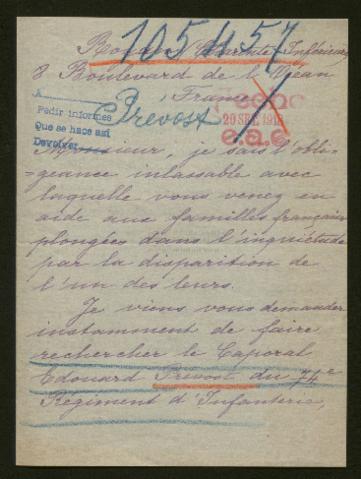 105457
Royan, Charente Inférieure
8 Boulevard de l'Océan
France
A
Pedir informes
Que se hace así
Devolver
Prévost
20 SEP. 1915
Monsieur, je sais l'obli-
=geance inlassable avec
laquelle vous venez en
aide aux familles françaises
plongées dans l'inquiétude
par la disparition de
l'un des leurs.
Je viens vous demander
instamment de faire
rechercher le Caporal
Edouard Prévost du 74e
Régiment d'Infanterie,